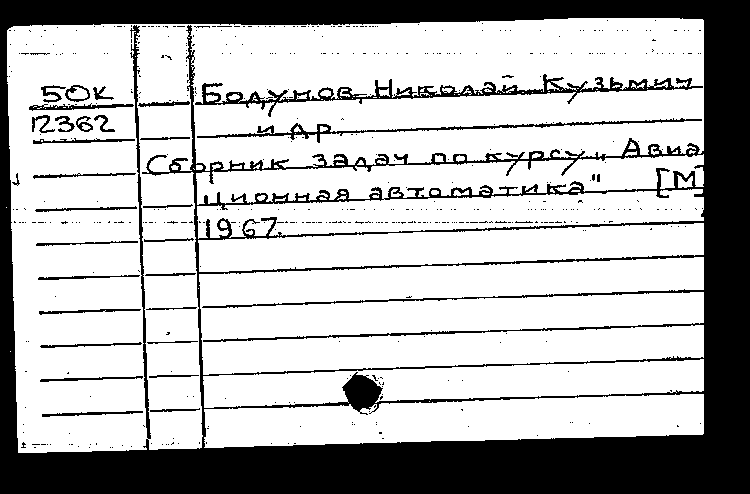 БОК
12362
Бодунов, Николай Кузьмич
и др.
Сборник задач по курсу „Авиа
ционная автоматика" [М]
1967.